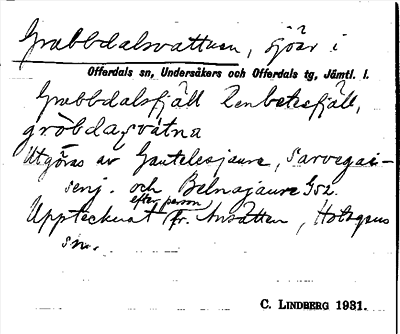 Grabbdalsvattnen, sjöar i
Offerdals sn, Undersåkers och Offerdals tg, Jämtl. l.
Grabbdalsfjäll Renbetesfjäll,
gröbdasvátna
Utgöras av Gautelesjaure, Sarvegai-
senj. och Belnajaure G52.
Upptecknat efter person fr. Ansätten, Hotagens
sn.
C. LINDBERG 1931.